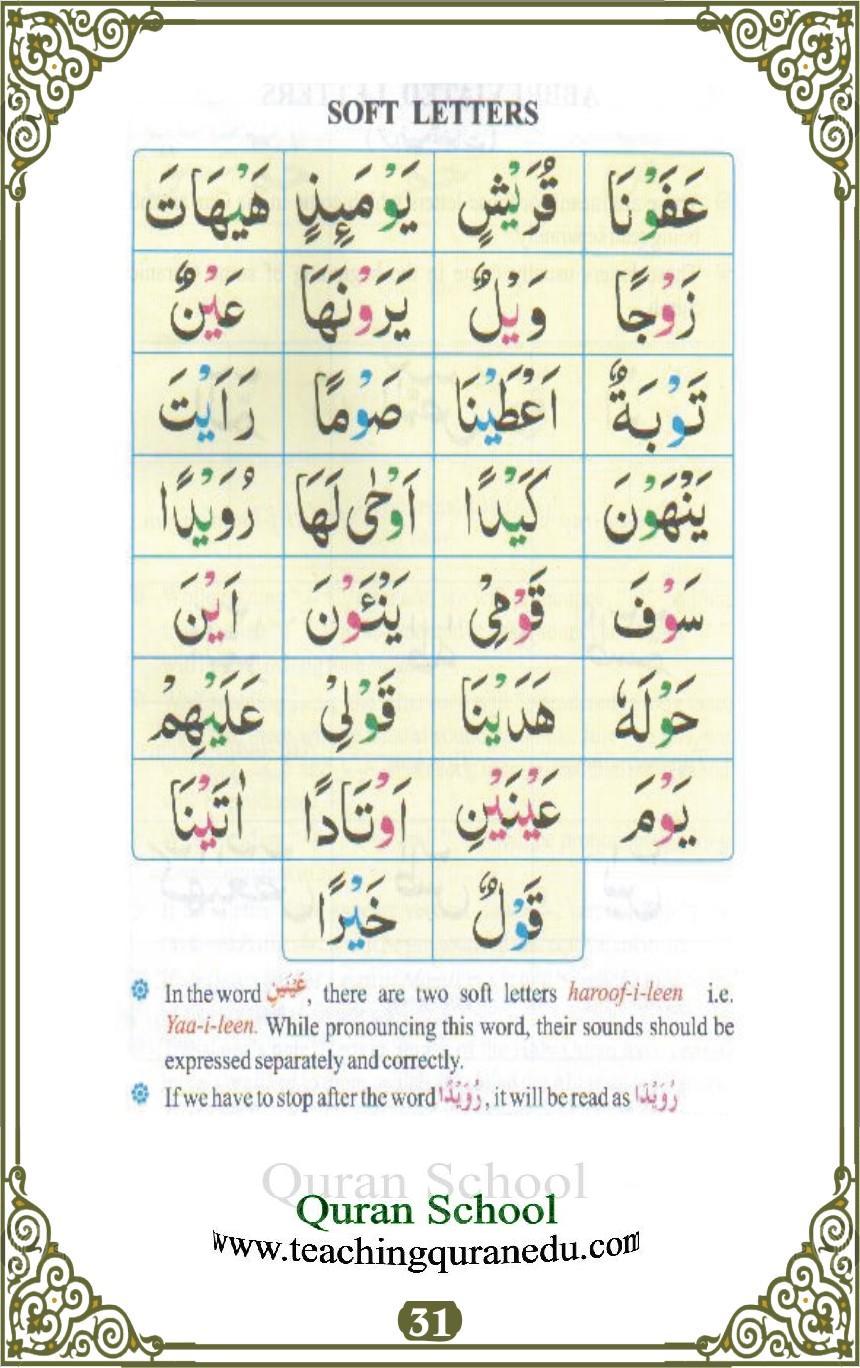 SOFT LETTERS
عَفَوْنَا قُرَيْشٍ يَوْمَئِذٍ هَيْهَاتَ
زَوْجًا وَيْلٌ يَرَوْنَهَا عَيْنٌ
تَوْبَةٌ اَعْطَيْنَا صَوْمًا رَاَيْتَ
يَنْهَوْنَ كَيْدًا اَوْحٰى لَهَا رُوَيْدًا
سَوْفَ قَوْمِىْ يَنْئَوْنَ اَيْنَ
حَوْلَهٗ هَدَيْنَا قَوْلِىْ عَلَيْهِمْ
يَوْمَ عَيْنَيْنِ اَوْتَادًا اٰتَيْنَا
قَوْلٌ خَيْرًا
In the word عَيْنَيْنِ, there are two soft letters haroof-i-leen i.e.
Yaa-i-leen. While pronouncing this word, their sounds should be
expressed separately and correctly.
If we have to stop after the word رُوَيْدًا, it will be read as رُوَيْدَا
Quran School
Quran School
www.teachingquranedu.com
31